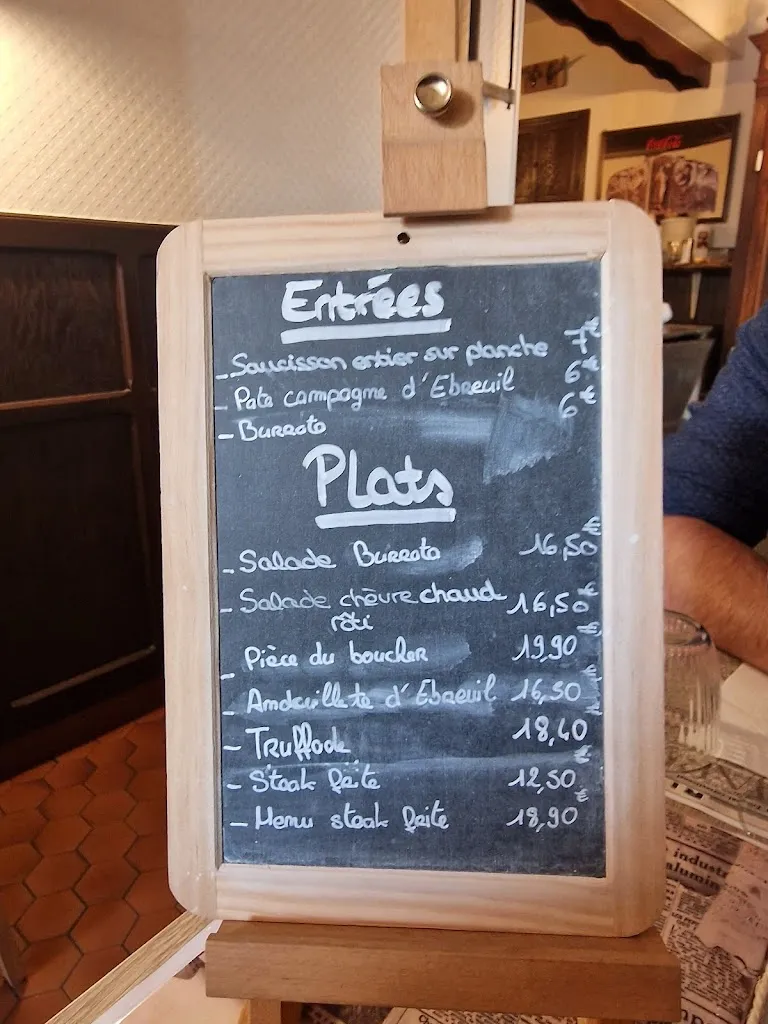 Coca-Cola
Entrées
- Saucisson entier sur planche 7€
- Pate campagne d'Ebreuil 6€
- Burrata 6€
Plats
- Salade Burrata 16,50€
- Salade chèvre chaud 16,50€
rôti
- Pièce du boucher 19,90€
- Andouillete d'Ebreuil 16,50€
- Truffade 18,40€
- Steak frite 12,50€
- Menu steak frite 18,90€
industr
alumin